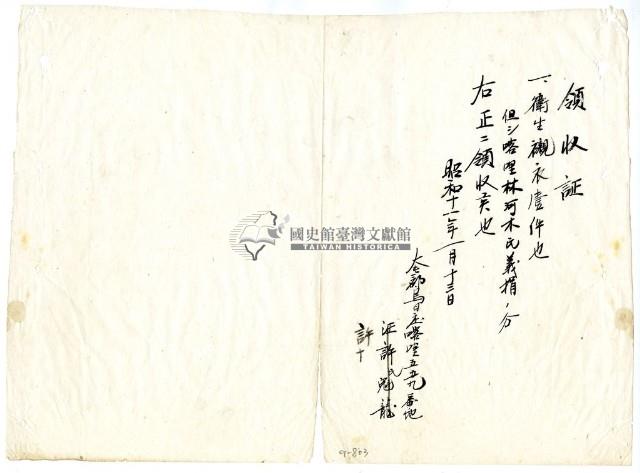 領収証
一、衛生襯衣壹件也
但シ喀哩林阿木氏義捐ノ分
右正ニ領収候也
昭和十一年一月十三日
大屯郡烏日庄喀哩五五九番地
許氏
許十
國史館臺灣文獻館
TAIWAN HISTORICA
9-803